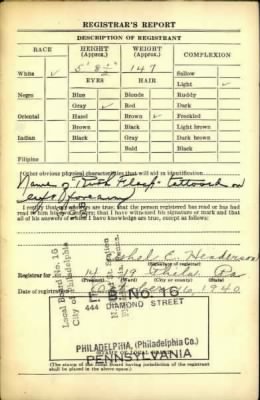 REGISTRAR'S REPORT
DESCRIPTION OF REGISTRANT
RACE HEIGHT (Approx.) WEIGHT (Approx.) COMPLEXION
5' 8½" 147
White ✓ EYES HAIR Sallow
Light ✓
Negro Blue Blonde Ruddy
Gray ✓ Red Dark
Oriental Hazel Brown ✓ Freckled
Brown Black Light brown
Indian Black Gray Dark brown
Bald Black
Filipino
Other obvious physical characteristics that will aid in identification
Name of Ruth tattooed on
left forearm
I certify that my answers are true; that the person registered has read or has had
read to him his own answers; that I have witnessed his signature or mark and that
all of his answers of which I have knowledge are true, except as follows:
Ethel C. Henderson
(Signature of registrar)
Registrar for 14 19 Phila. Pa
(Precinct) (Ward) (City or county) (State)
Date of registration 16, 1940
Local Board No. 16
City of Philadelphia
L. B. No. 16
444 DIAMOND STREET
PHILADELPHIA, (Philadelphia Co.)
PENNSYLVANIA
(STAMP OF LOCAL BOARD)
(The stamp of the Local Board having jurisdiction of the registrant
shall be placed in the above space.)